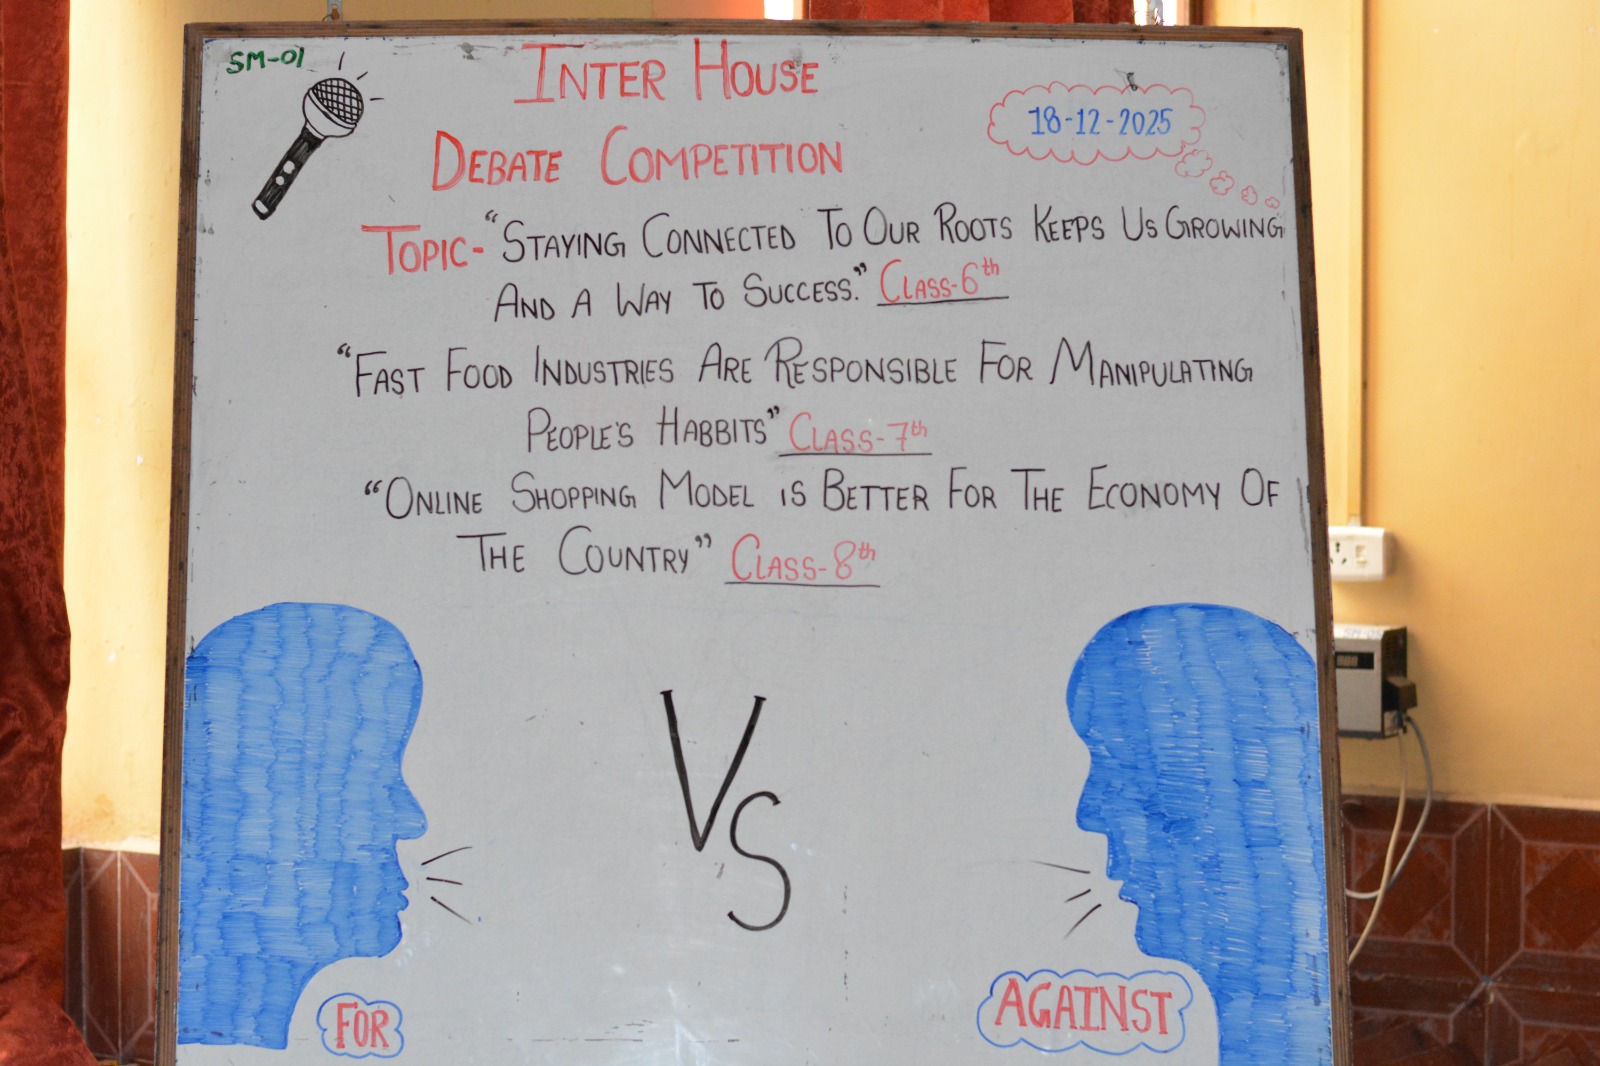 SM-01
INTER HOUSE
DEBATE COMPETITION
18-12-2025
TOPIC- "STAYING CONNECTED TO OUR ROOTS KEEPS US GROWING
AND A WAY TO SUCCESS." CLASS-6th
"FAST FOOD INDUSTRIES ARE RESPONSIBLE FOR MANIPULATING
PEOPLE'S HABBITS" CLASS-7th
"ONLINE SHOPPING MODEL IS BETTER FOR THE ECONOMY OF
THE COUNTRY" CLASS-8th
VS
FOR
AGAINST